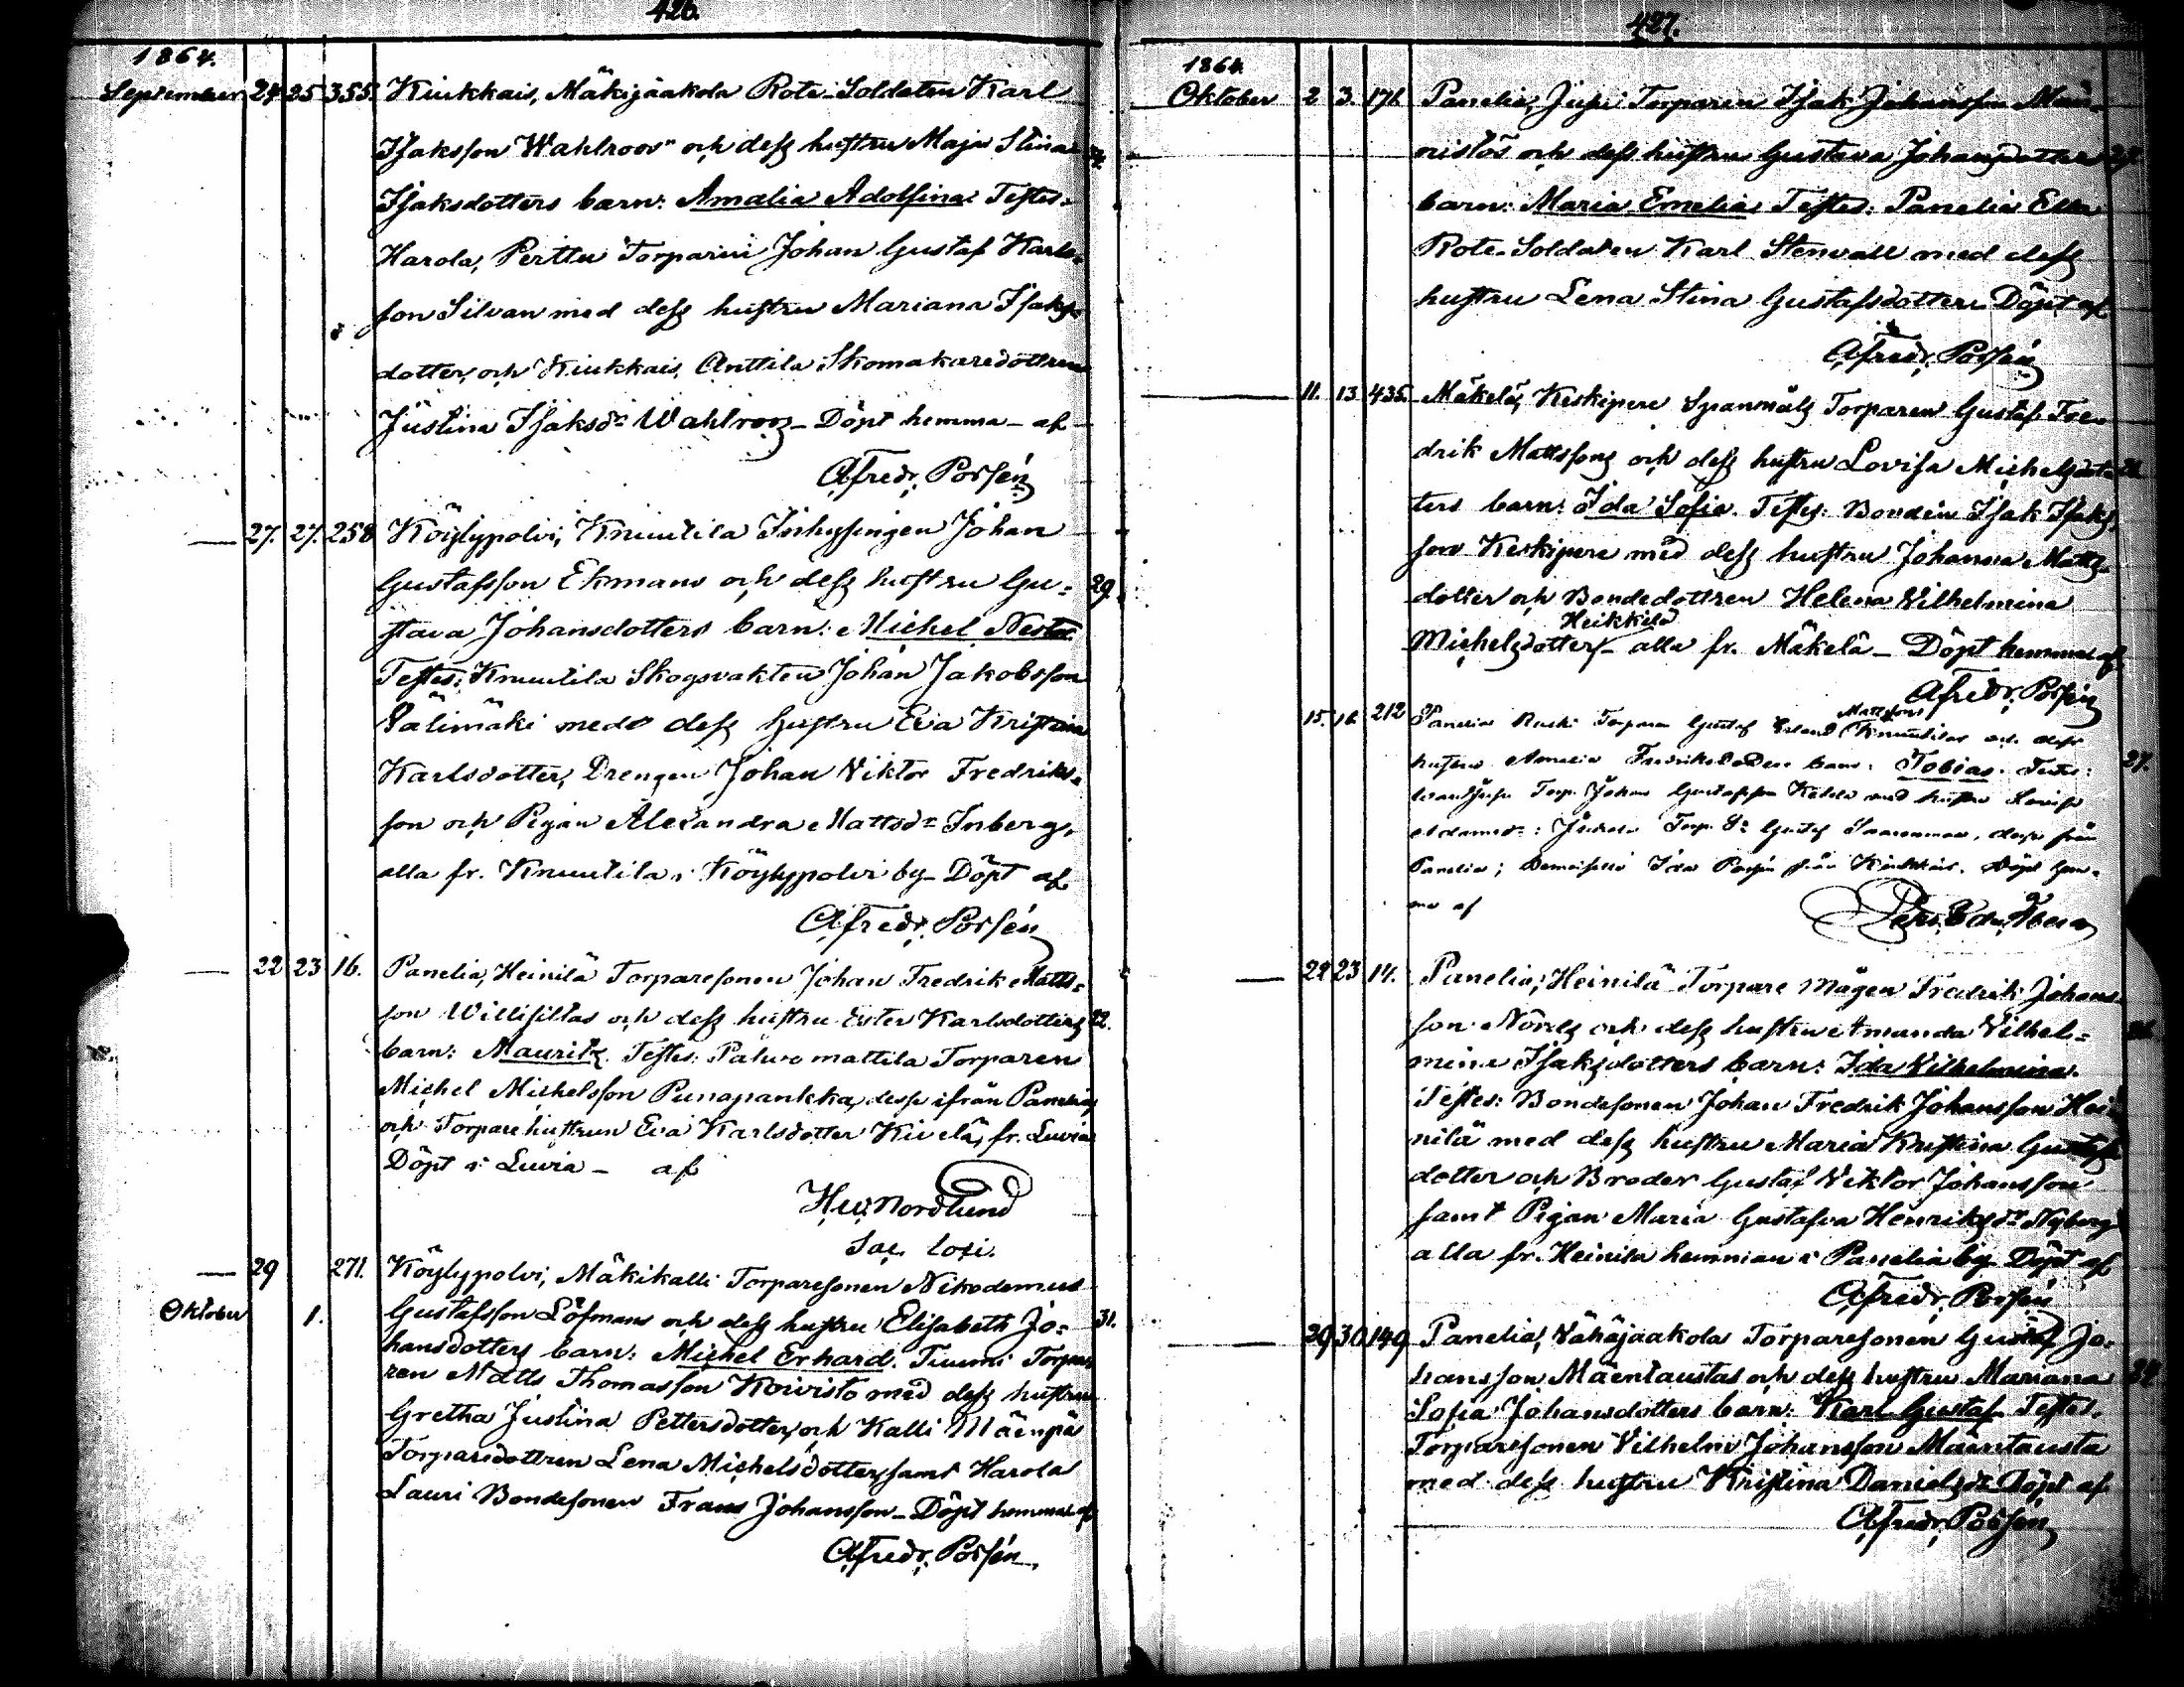 426.
1864.
September 24 25 355. Kiukkais, Mäkijaakola Rote-Soldaten Karl
Isaksson Wahlroos och dess hustru Maja Stina
Isaksdotters barn: Amalia Adolfina. Testes.
Harola, Perttu Torparen Johan Gustaf Karls-
son Silvan med dess hustru Mariana Isaks-
dotter, och Kiukkais, Anttila Skomakaredottren
Justina Isaksdr Wahlroos – Döpt hemma – af
Afredr. Porsén
27. 27. 258 Köylypolvi, Knuutila Inhysingen Johan
Gustafsson Ekmans och dess hustru Gu- 29.
stava Johansdotters barn: Michel Nestor
Testes: Knuutila Skogsvakten Johan Jakobsson
Välimäki med dess hustru Eva Kristina
Karlsdotter, Drengen Johan Viktor Fredriks-
son och Pigan Alexandra Mattsdr Inberg,
alla fr. Knuutila i Köylypolvi by – Döpt af
Afredr. Porsén
22 23 16. Panelia, Heinilä Torparesonen Johan Fredrik Matts-
son Willisillas och dess hustru Ester Karlsdotters 22.
barn: Mauritz. Testes: Pal mattila Torparen
Michel Michelsson Punapankka, desse ifrån Panelia,
och Torparehustrun Eva Karlsdotter Kivelä, fr. Luvia
Döpt i Luvia – af
Nordlund
Sac. loci.
29 271. Köylypolvi, Mäkikalli Torparesonen Nikodemus
Oktober 1. Gustafsson Löfmans och dess hustru Elisabeth Jo- 31.
hansdotters barn: Michel Erhard. Tuumi Torpa-
ren Matts Thomasson Koivisto med dess hustru
Gretha Justina Pettersdotter, och Kalli Mäenpä
Torparedottren Lena Michelsdotter, samt Harola
Lauri Bondesonen Frans Johansson – Döpt hemma af
Afredr. Porsén.
427.
1864.
Oktober 2 3. 171. Panelia, Jussi Torparen Isak Johansson Män-
nistös och dess hustru Gustava Johansdotters
barn: Maria Emelia. Testes: Panelia
Rote-Soldaten Karl Stenvall med dess
hustru Lena Stina Gustafsdotter. Döpt af
Afredr. Porsén
11. 13 435. Mäkelä, Keskipere Spanmåls Torparen Gustaf Fre-
drik Mattssons och dess hustru Lovisa Michelsdot-
ters barn: Ida Sofia. Testes: Bonden Isak Isaks-
son Keskipere med dess hustru Johanna Matts-
dotter och Bondedottren Helena Vilhelmina
Heikkilä
Michelsdotter – alla fr. Mäkelä – Döpt hemma af
Afredr. Porsén
15. 16 212 Panelia Torparen Gustaf Mattssons Knuutilas och dess
hustru Amalia Fredriksdotters barn: Tobias. Testes: 27.
Torp. Johan Gustafsson med hustru Lovisa
Adamsdr: Torp. Gustaf desse från
Panelia; Demoiselle Ida Porsén från Kiukkais. Döpt hem-
ma af
22 23 17. Panelia, Heinilä Torpare Mågen Fredrik Johans-
son Nords och dess hustru Amanda Vilhel-
mina Isaksdotters barn: Ida Vilhelmina.
Testes: Bondesonen Johan Fredrik Johansson Hei-
nilä med dess hustru Maria Kristina Gustafs-
dotter och Broder Gustaf Viktor Johansson
samt Pigan Maria Gustafva Henriksdr Nyberg
alla fr. Heinilä hemman i Panelia by. Döpt af
Afredr. Porsén
29 30 149 Panelia, Vähäjaakola Torparesonen Gustaf Jo-
hansson Mäentaustas och dess hustru Mariana
Sofia Johansdotters barn: Karl Gustaf. Testes.
Torparesonen Vilhelm Johansson Mäentausta
med dess hustru Kristina Danielsdr Döpt af
Afredr. Porsén